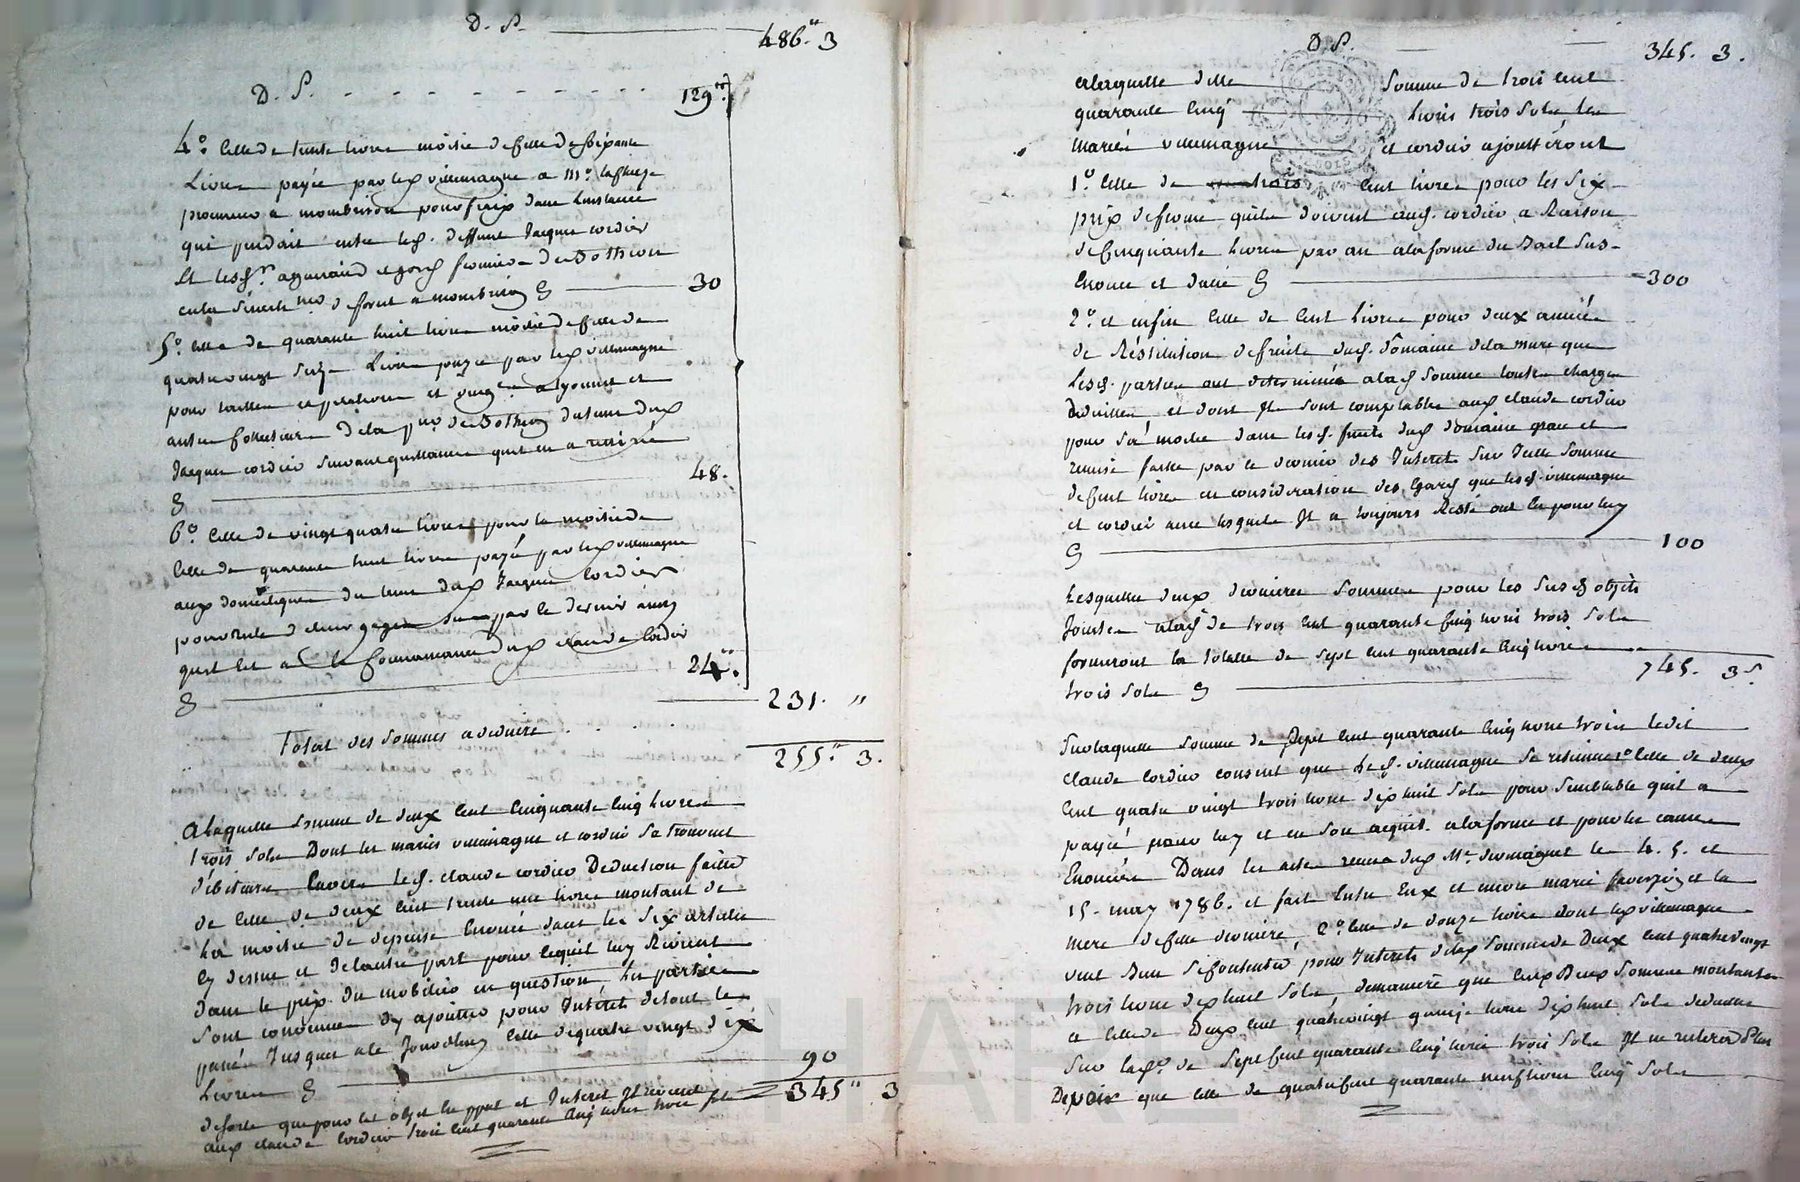 D. P. 486.# 3
D. P. 129#
4.° Celle de trente livres moitié de celle de soixante
livres payée par led. villemagne a m.e
procureur a montbrison pour frais dans linstance
qui pendait entre led. deffunt Jacques cordier
Et les Srs. fermiers de Bothéon
en la Sénéch. de forest a montbrison 30
5.° celle de quarante huit livres moitié de celle de
quatre vingt seize Livres payée par led. villemagne
pour tailles et et
autres collecteurs de la p.sse de Bothéon du tems dud.
Jacques cordier suivant quittances quil en a retirées
48.
6.° Celle de vingt quatre livres pour la moitié de
celle de quarante huit livres payée par led. villemagne
aux domestiques du tems dud. Jacques Cordier
pour reste de leurs gages par le dernier ainsy
quil est a la Connoissance dud. claude Cordier
24.#
231. "
Total des sommes a déduire
255.# 3.
A laquelle somme de deux cent cinquante cinq livres
trois sols Dont les mariés villemagne et cordier se trouvent
débiteurs Envers led. claude cordier Déduction faitte
de celle de deux cent trente une livres montant de
la moitié de dépense Enoncée dans les six articles
cy dessus et de l'autre part pour lequel luy revient
dans le prix du mobilier en question, les parties
sont convenues d'y ajouter pour Intérêt de tout le
passé Jusques a ce Jourdhuy celle de quatre vingt dix
Livres 90
345# 3
de sorte que pour cet objet le ppal et Interet Il revient
aud. claude Cordier trois cent quarante cinq livres trois sols
D. P. 345. 3.
a laquelle dite Somme de trois cent
quarante cinq livres trois sols les
mariés villemagne et cordier ajoutteront
1.° Celle de trois cent livres pour les six
prix de ferme quils doivent aud. cordier a Raison
de Cinquante livres par an a la forme du Bail sus-
énoncé et datté 300
2.° et enfin Celle de Cent livres pour deux années
de Réstitution de fruits dud. domaine de la mure que
Lesd. parties ont déterminés a lad. Somme toutes charges
déduittes et dont Ils sont comptables aud. claude cordier
pour sa moitié dans lesd. fruits dud. domaine grace et
remise faitte par le dernier des Intérets sur Icelle somme
de Cent livres en considération des Egards que lesd. villemagne
et cordier avec lesquels Il a toujours Resté ont Eu pour luy
100
Lesquelles deux dernieres Sommes pour les susd. objets
Jointes a lad. de trois Cent quarante Cinq livres trois sols
formeront la totalle de Sept cent quarante Cinq livres
trois sols 745. 3.s
Sur laquelle somme de Sept Cent quarante Cinq livres trois sols ledit
Claude Cordier consent que led. villemagne se retienne 1.° Celle de deux
Cent quatre vingt trois livres dix huit sols pour semblable quil a
payée pour luy et en son acquit a la forme et pour les causes
Enoncées Dans les actes reçus dud. M.e le 4. 5. et
15. may 1786. et fait Entre Eux et encore marie et la
mere de cette derniere, 2.° Celle de douze livres dont led. villemagne
veut Bien se Contenter pour Intérets desd. sommes de Deux Cent quatre vingt
trois livres dix huit sols, demaniere que ces Deux Sommes montant
a celle de Deux Cent quatre vingt quinze livres dix huit sols déduites
Sur lad. de Sept Cent quarante Cinq livres trois sols Il ne restera Plus
Devoir que celle de quatre Cent quarante neuf livres Cinq sols